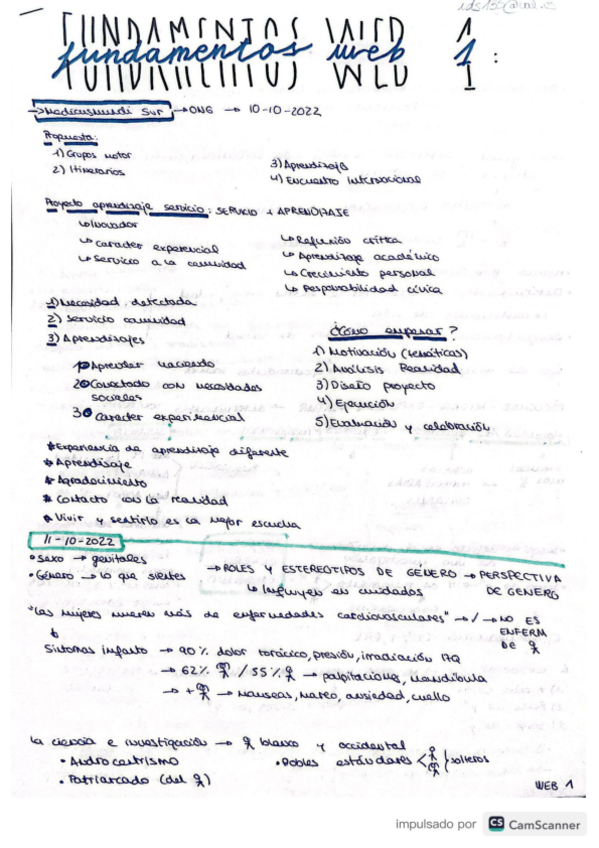 FUNDAMENTOS WEB 1
fundamentos web 1:
→ Medicusmundi Sur → ONG → 10-10-2022
Propuesta:
1) Grupos motor
2) Itinerarios
3) Aprendizaje
4) Encuentro internacional
Proyecto aprendizaje servicio: SERVICIO + APRENDIZAJE
↳ Inovador
↳ Caracter experencial
↳ Servicio a la comunidad
↳ Reflexión crítica
↳ Aprendizaje académico
↳ Crecimiento personal
↳ Responsabilidad cívica
1) Necesidad detectada
2) Servicio comunidad
3) Aprendizajes
1 Aprender haciendo
2 Conectado con necesidades
sociales
3 Caracter experimencial
¿Cómo empezar?
1) Motivación (temáticas)
2) Análisis Realidad
3) Diseño proyecto
4) Ejecución
5) Evaluación y celebración
* Experiencia de aprendizaje diferente
* Aprendizaje
* Agradecimiento
* Contacto con la realidad
* Vivir y sentirlo es la mejor escuela
11-10-2022
• Sexo → genitales
• Género → lo que sientes
→ ROLES Y ESTEREOTIPOS DE GÉNERO → PERSPECTIVA
DE GENERO
↳ Influyen en cuidados
"Las mujeres mueren más de enfermedades cardiovasculares" → / → NO ES
ENFERM
DE ♀
Síntomas infarto → 90% dolor torácico, presión, irradiación
→ 62% ♀ / 55% ♂ → palpitaciones, mandíbula
→ + ♀ → nauseas, mareo, ansiedad, cuello
La ciencia e investigación → ♂ blanco y occidental
• Androcentrismo
• Patriarcado (del ♂)
• Dobles estándares < ♂ ♀ } solteros
WEB 1
impulsado por CS CamScanner